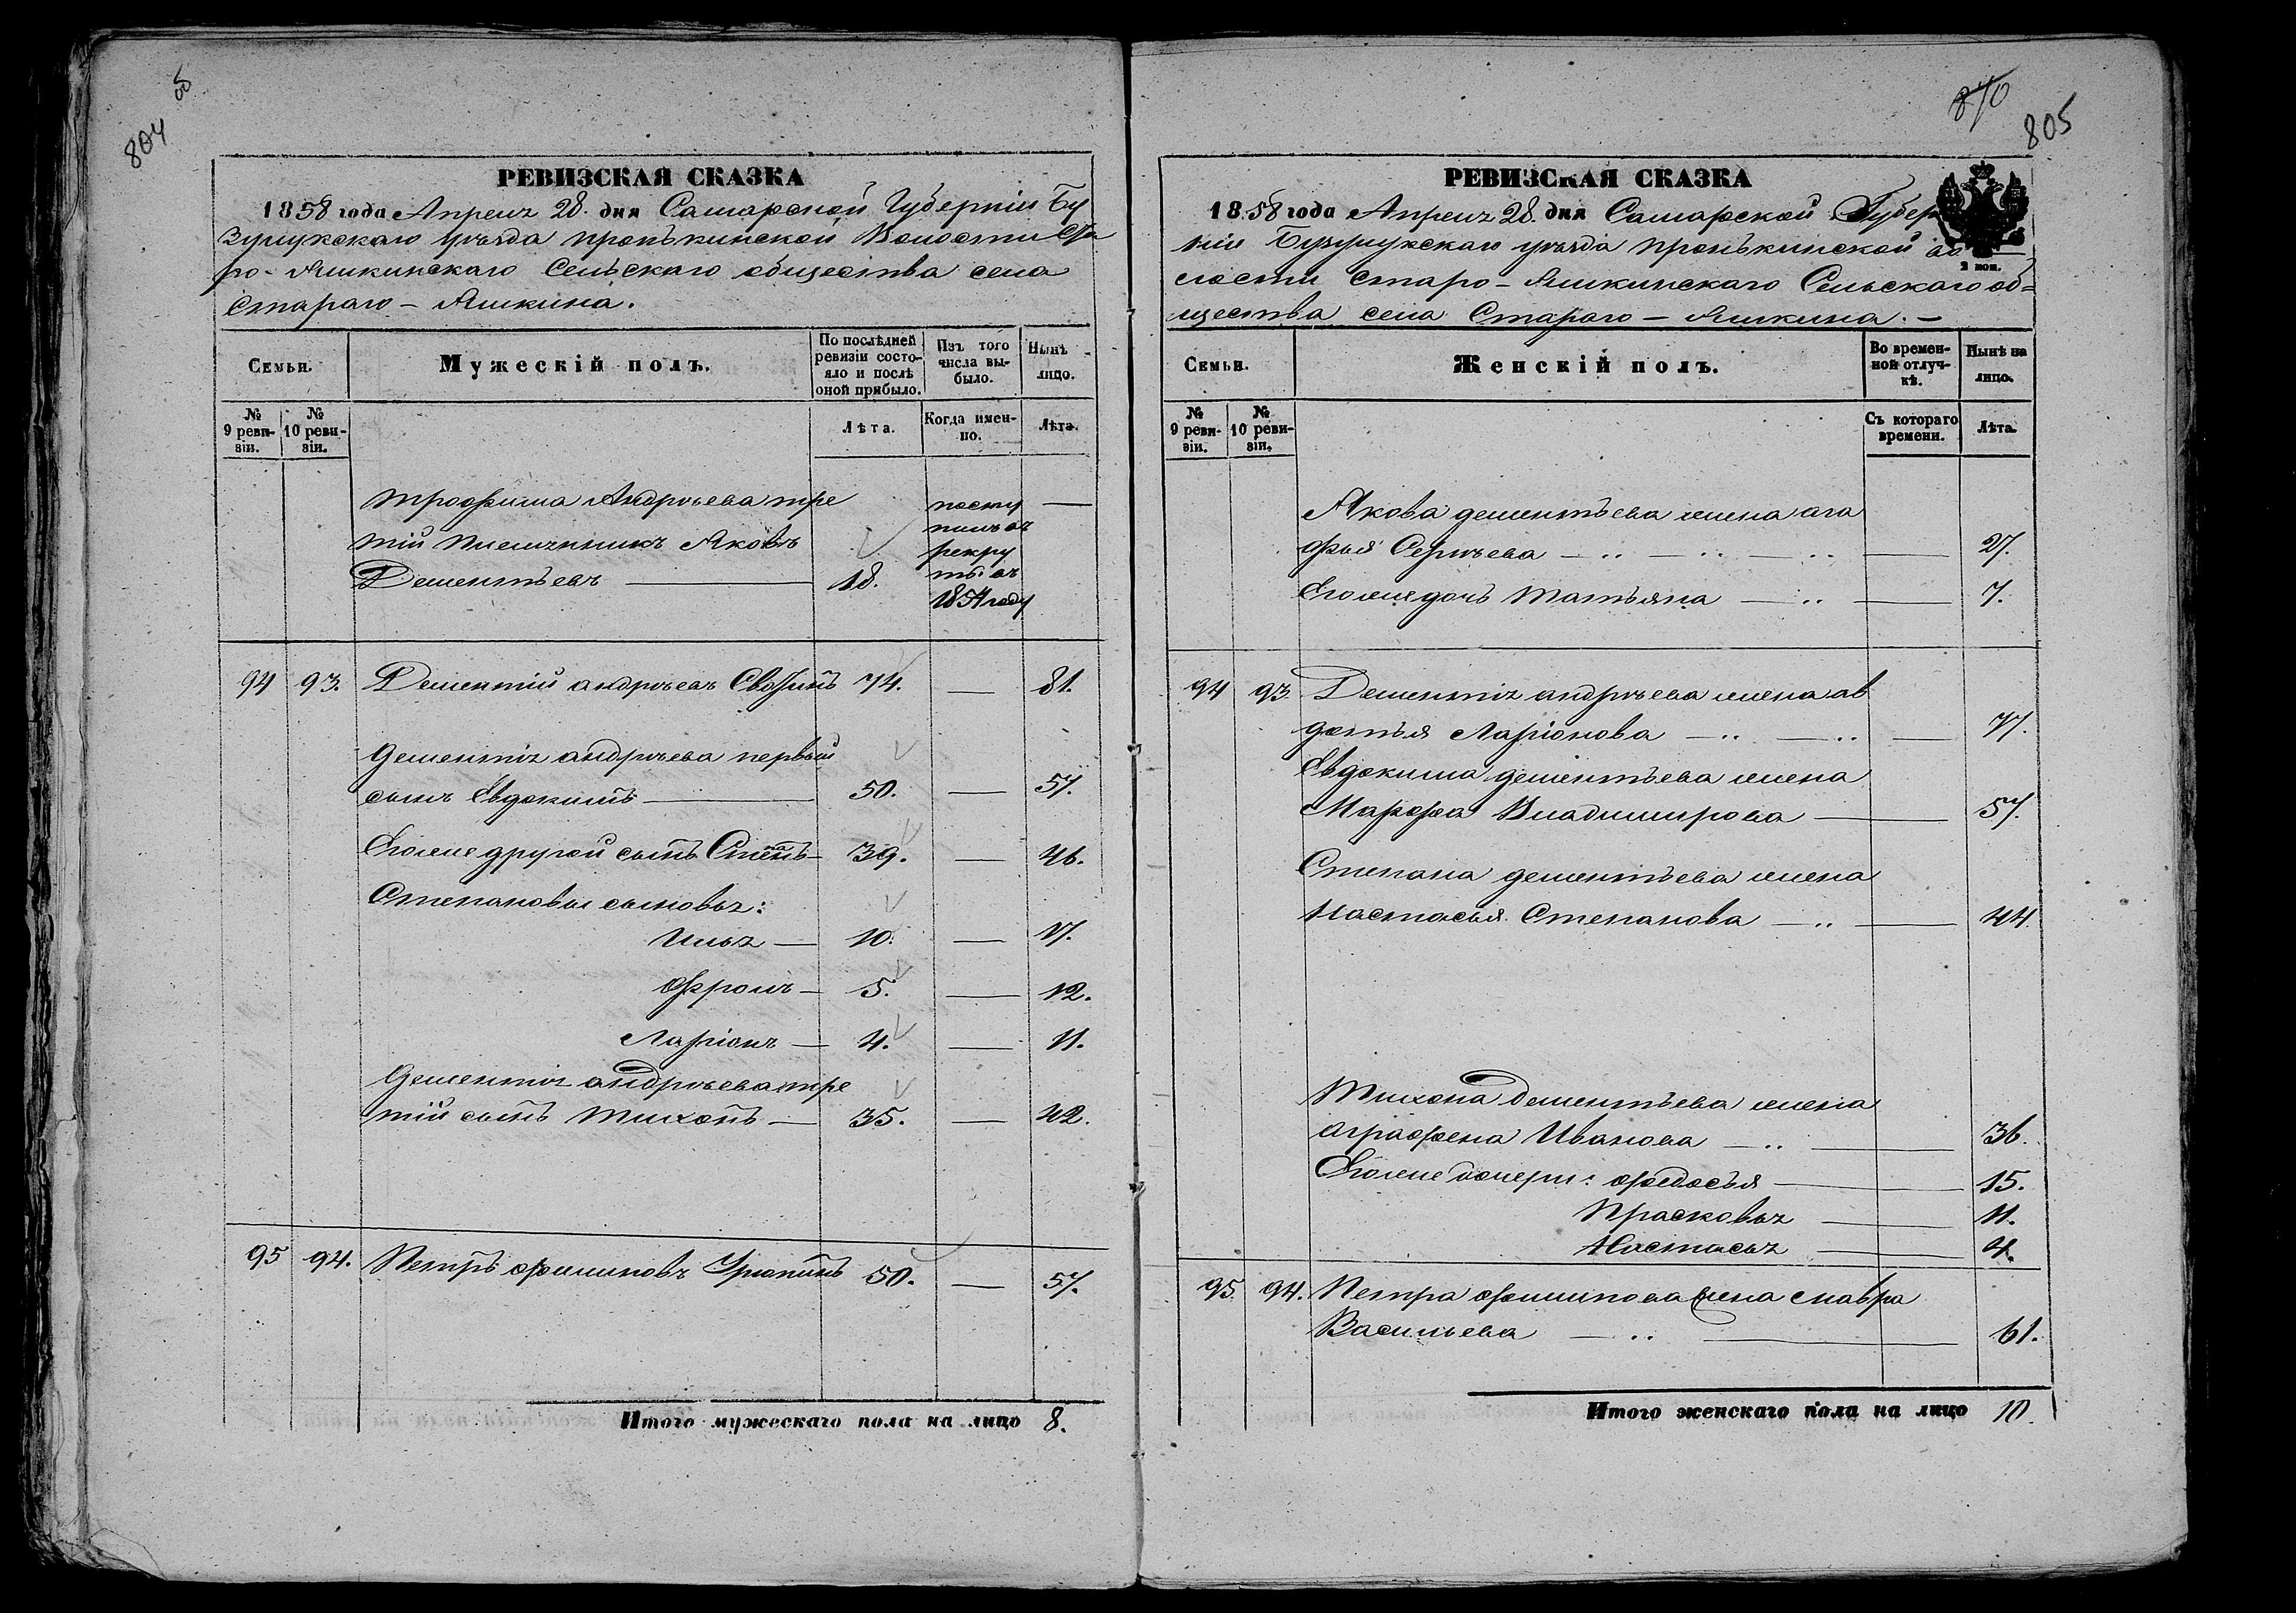 804
РЕВИЗСКАЯ СКАЗКА
1858 года Апреля 28. дня Самарской Губерніи Бу
зулукскаго уѣзда пронькинской Волости Ста
ро-Яшкинскаго Сельскаго общества села
Стараго-Яшкина.
Семьи.
Мужескій полъ.
По послѣдней ревизіи состояло и послѣ оной прибыло.
Изъ того числа выбыло.
Нынѣ на лицо.
№ 9 ревизіи.
№ 10 ревизіи.
Лѣта.
Когда именно.
Лѣта.
Трофима Андреева тре
тій племянникъ Яковъ
Дементьевъ — 18.
посту
пилъ въ
рекру
ты въ
1854 году
—
94 93. Дементій андреевъ 74. — 81.
Дементія андреева первый
сынъ Евдокимъ — 50. — 57.
Его же другой сынъ Степанъ — 39. — 46.
Степановы сыновья:
Илья — 10. — 17.
Фролъ — 5. — 12.
Ларіонъ — 4. — 11.
Дементія андреева тре
тій сынъ Тихонъ — 35. — 42.
95 94. Петръ филиповъ Урюпинъ 50. — 57.
Итого мужескаго пола на лицо 8.
870
805
РЕВИЗСКАЯ СКАЗКА
1858 года Апреля 28. дня Самарской Губер
ніи Бузулукскаго уѣзда пронькинской во
лости Старо-Яшкинскаго Сельскаго об=
щества села Стараго-Яшкина.—
2 коп.
Семьи.
Женскій полъ.
Во временной отлучкѣ.
Нынѣ на лицо.
№ 9 ревизіи.
№ 10 ревизіи.
Съ котораго времени.
Лѣта.
Якова дементьева жена ага
фья Сергѣева — 27.
Его же дочь Татьяна — 7.
94 93. Дементія андреева жена ав
дотья Ларіонова — 77.
Евдокима дементьева жена
Марфа Владимирова — 57.
Степана дементьева жена
Настасья Степанова — 44.
Тихона Дементьева жена
аграфена Иванова — 36.
Его же дочери: федосья — 15.
Прасковья — 11.
Настасья — 4.
95. 94. Петра филипова жена мавра
Васильева — 61.
Итого женскаго пола на лицо 10.